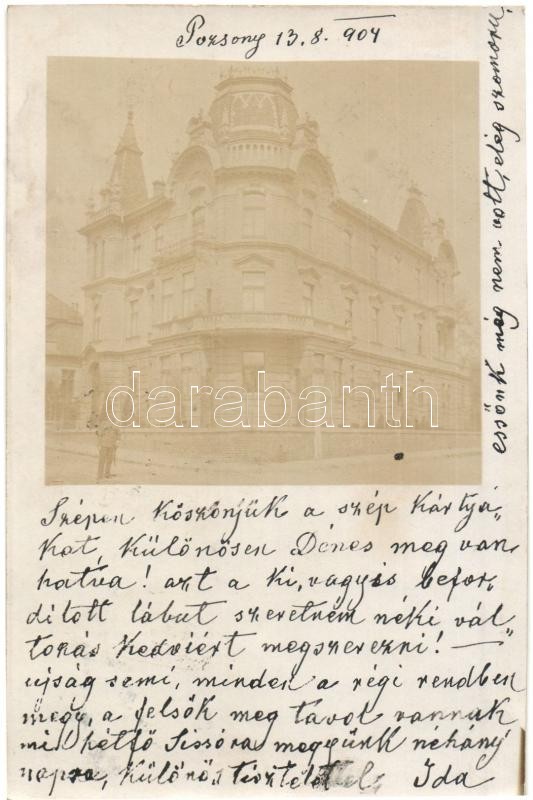 Pozsony 13.8. 904
essőnk még nem volt, elég szomorú,
darabanth
Szépen köszönjük a szép kártyá„
kat, különösen Dénes meg van
hatva! azt a ki, vagyis befor„
dított lábut szeretném néki vál
tozás kedviért megszerezni! —
ujság semi, minden a régi rendben
megy, a felsők meg távol vannak
mi hétfő Sissóra megyünk néhány
napra, Ida